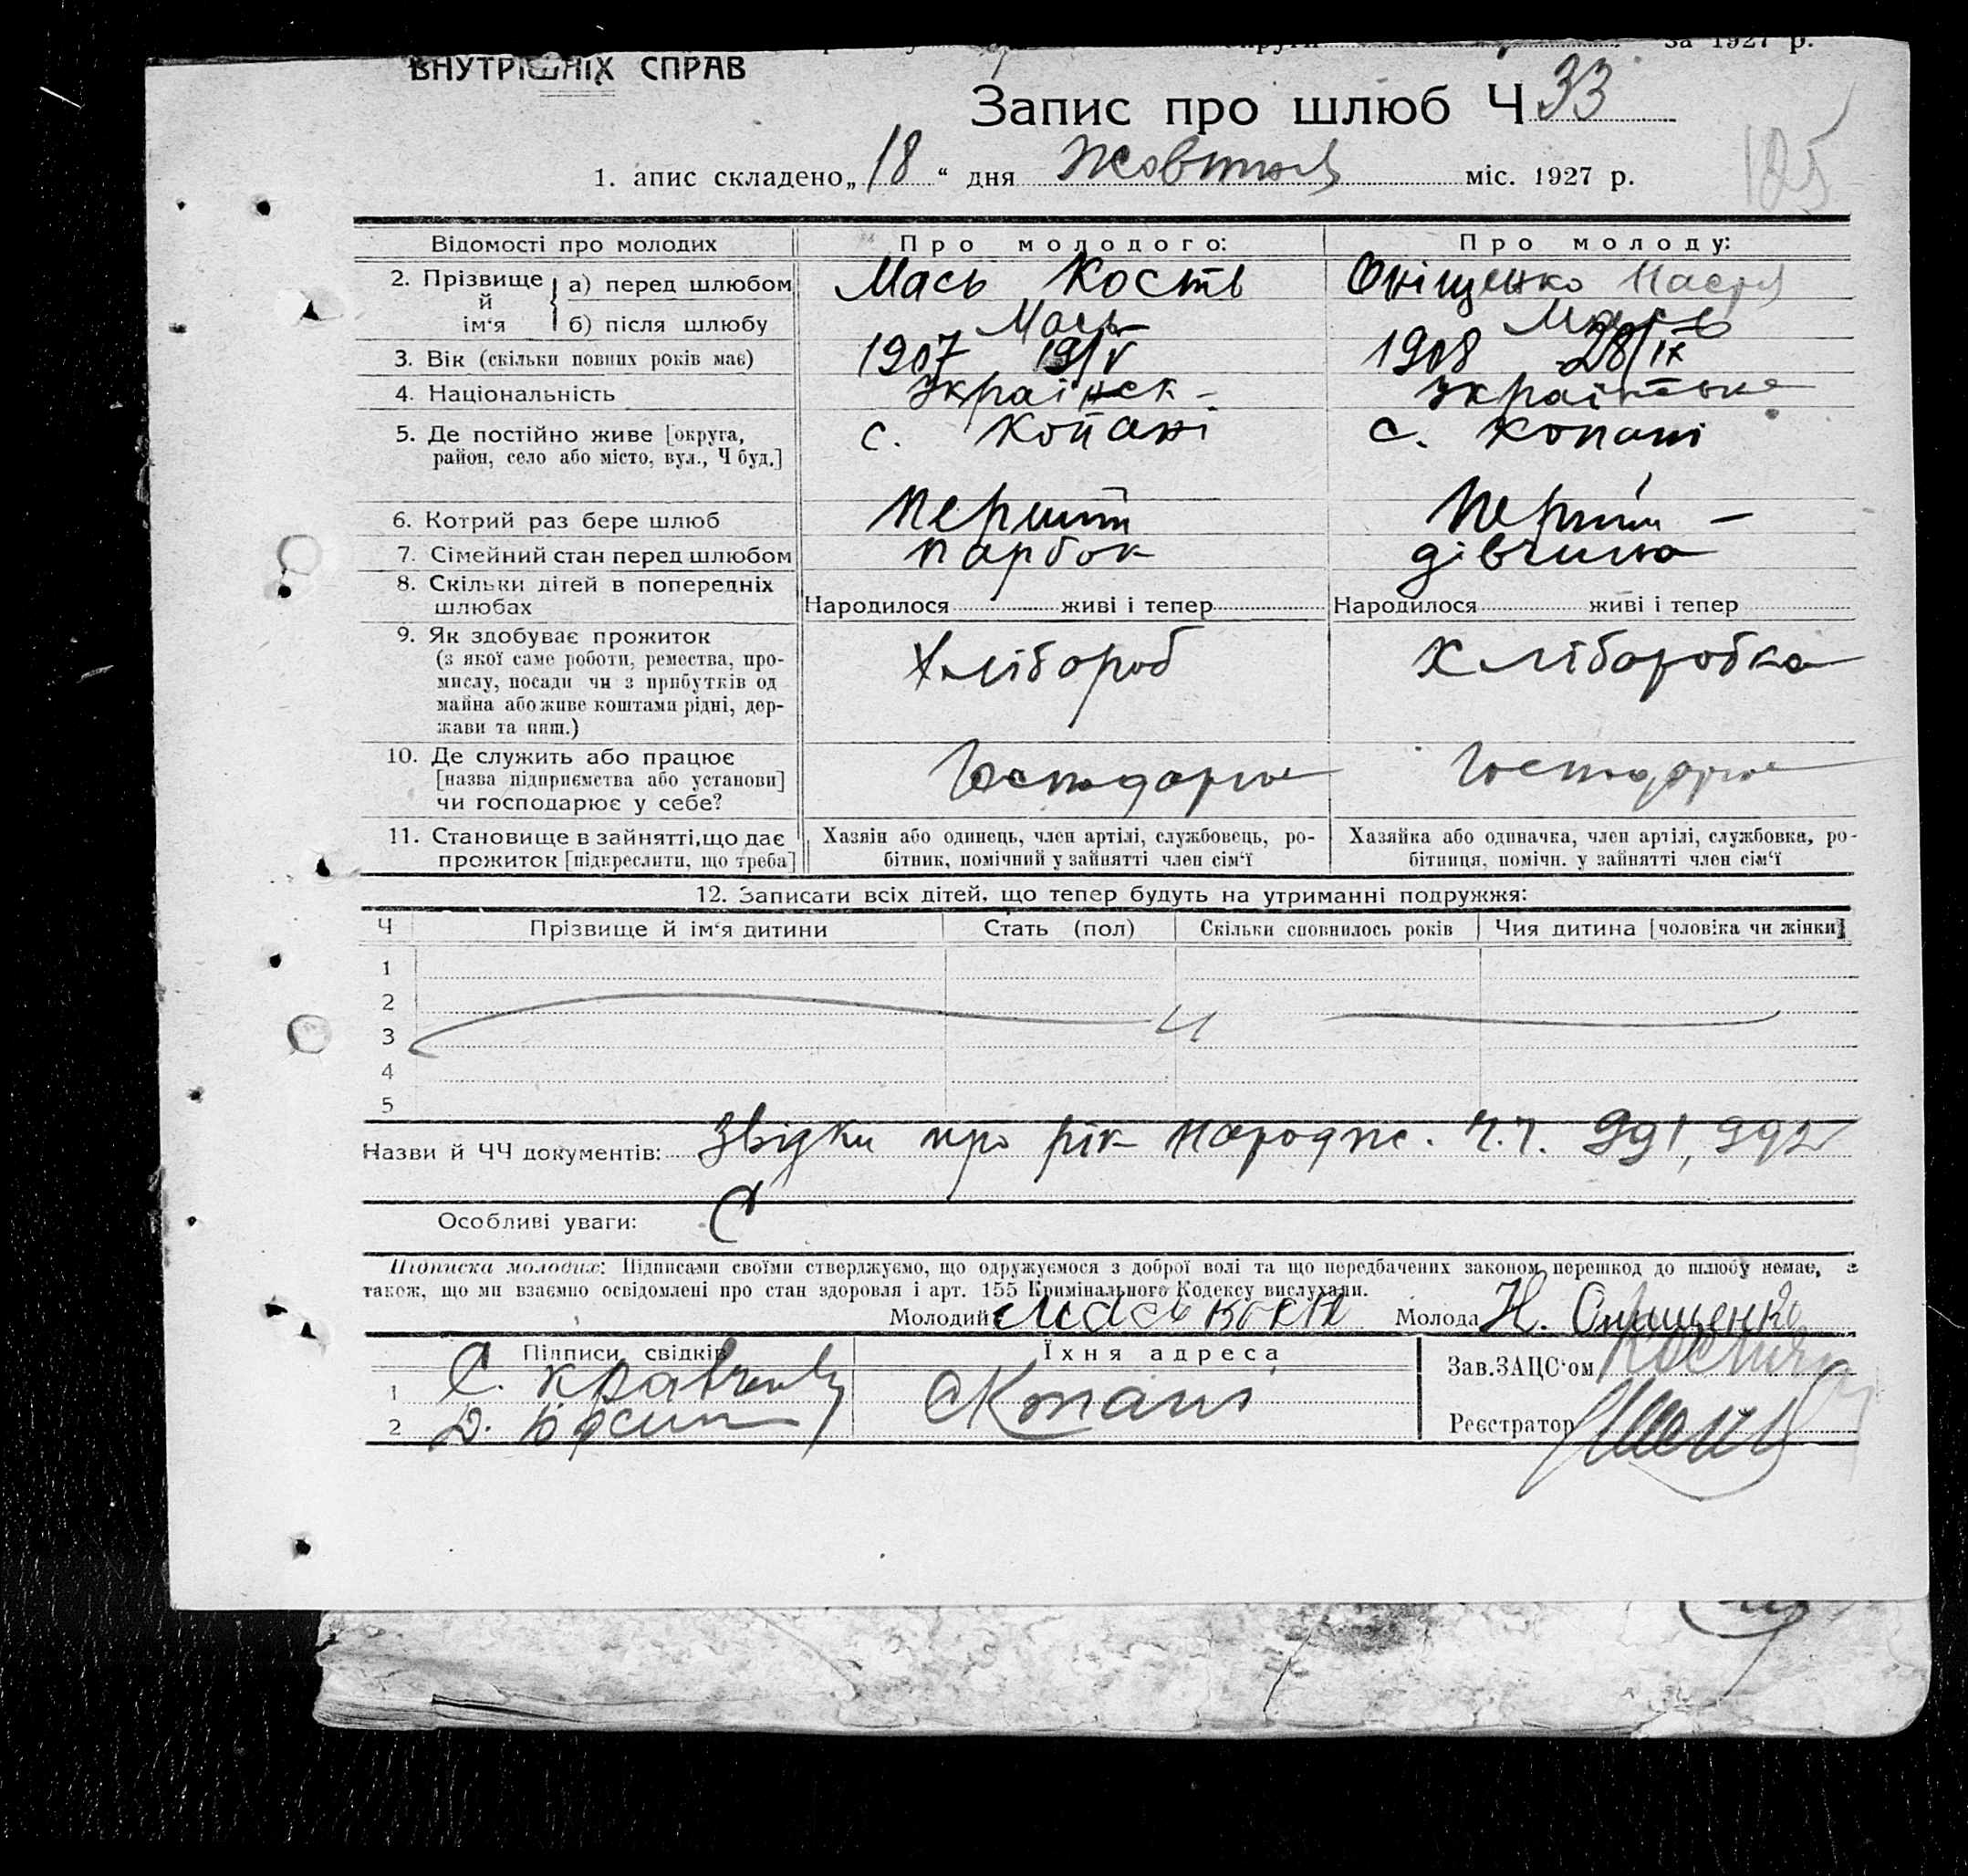 округи за 1927 р.
ВНУТРІШНІХ СПРАВ
Запис про шлюб Ч 33
185
1. апис складено „ 18 “ дня Жовтня міс. 1927 р.
Відомості про молодих Про молодого: Про молоду:
2. Прізвище й ім‘я а) перед шлюбом Мась Кость Оніщенко
б) після шлюбу Мась Мась
3. Вік (скільки повних років має) 1907 19/V 1908 28/IX
4. Національність Українск- Українська
5. Де постійно живе [округа, с. Копані с. Копані
район, село або місто, вул., Ч буд.]
6. Котрий раз бере шлюб Перший Перший —
7. Сімейний стан перед шлюбом парубок дівчина
8. Скільки дітей в попередніх
шлюбах Народилося живі і тепер Народилося живі і тепер
9. Як здобуває прожиток
(з якої саме роботи, ремества, про- Хлібороб Хліборобка
мислу, посади чи з прибутків од
майна або живе коштами рідні, дер-
жави та инш.)
10. Де служить або працює
[назва підприємства або установи] Господарює Господарює
чи господарює у себе?
11. Становище в зайнятті, що дає Хазяін або одинець, член артілі, службовець, ро- Хазяйка або одиначка, член артілі, службовка, ро-
прожиток [підкреслити, що треба] бітник, помічний у зайнятті член сім‘ї бітниця, помічн. у зайнятті член сім‘ї
12. Записати всіх дітей, що тепер будуть на утриманні подружжя:
Ч Прізвище й ім‘я дитини Стать (пол) Скільки сповнилось років Чия дитина [чоловіка чи жінки]
1
2
3
4
5
Назви й ЧЧ документів: Звідки про рік народже. Ч.Ч. 991, 992
Особливі уваги:
Підписка молодих: Підписами своїми стверджуємо, що одружуємося з доброї волі та що передбачених законом перешкод до шлюбу немає, а
також, що ми взаємно освідомлені про стан здоровля і арт. 155 Кримінального Кодексу вислухали.
Молодий Мась Кость Молода Н. Онищенко
Підписи свідків Їхня адреса Зав.ЗАЦС‘ом
1 С. Кравченко с Копані
2 Д. Реєстратор